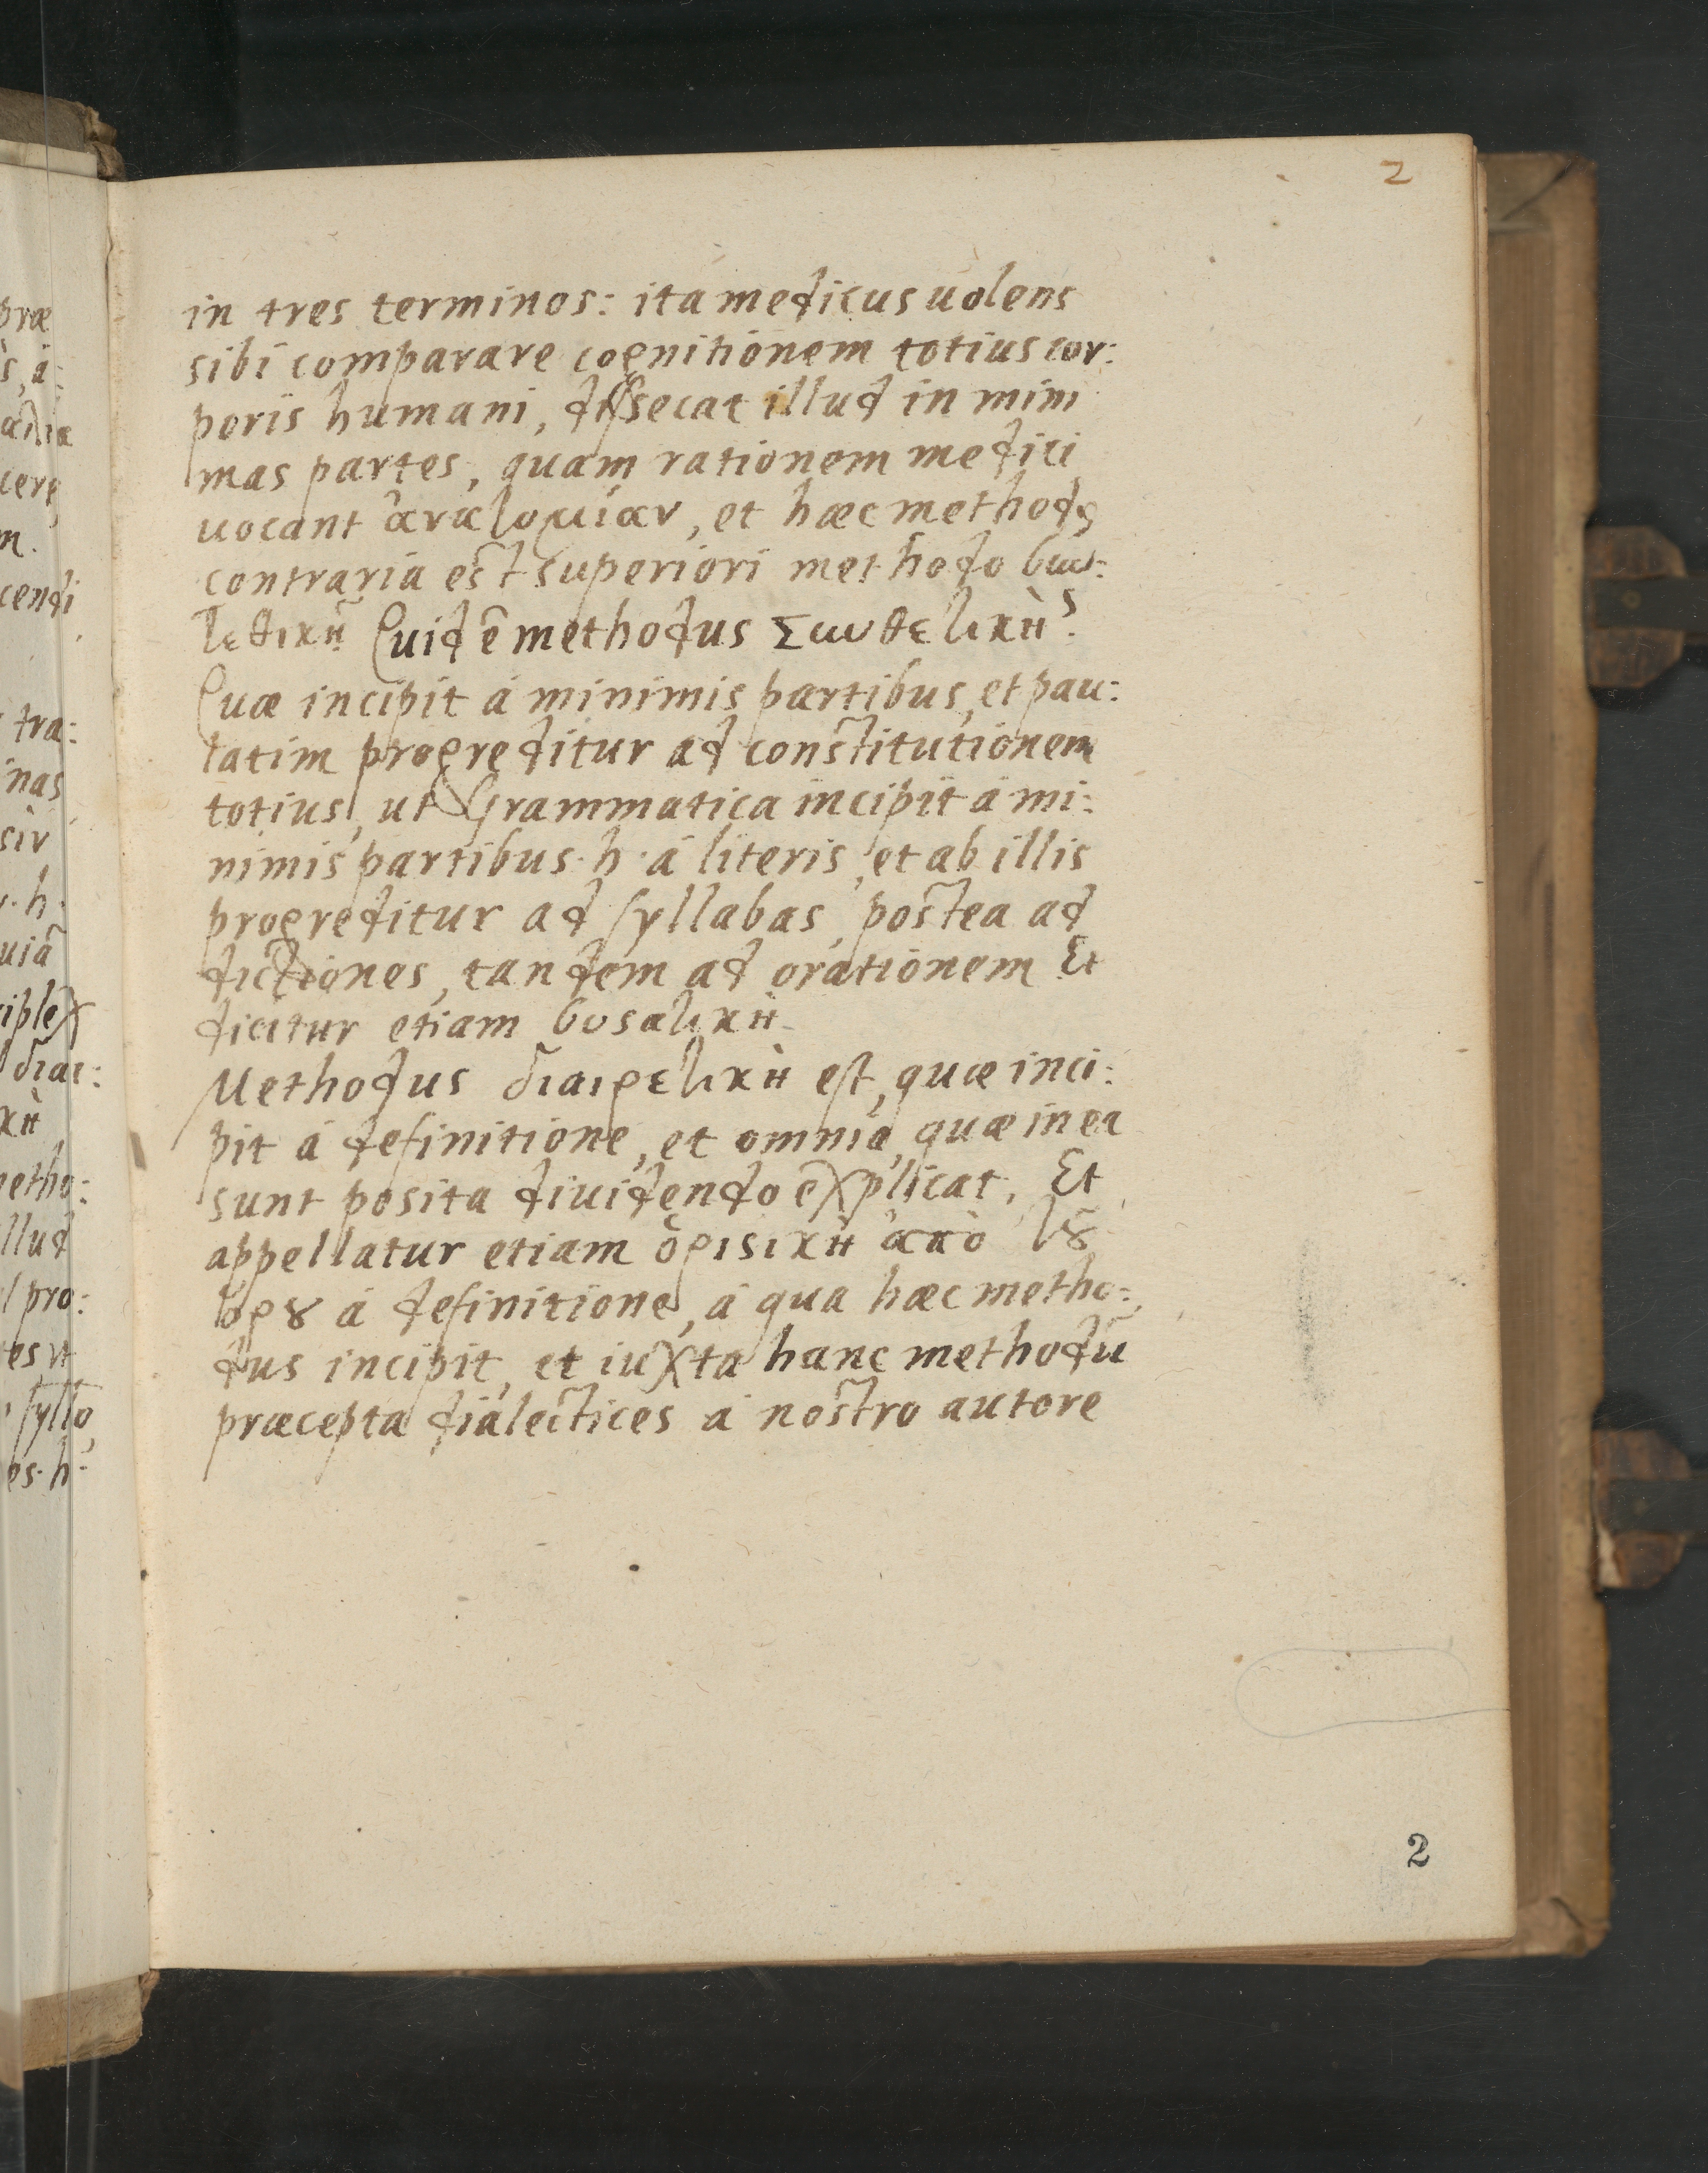 2
in tres terminos: ita medicus uolens
sibi comparare cognitionem totius cor:
poris humani, dissecat illud in mini
mas partes, quam rationem medici
uocant ἀναλομίαν, et hæc methodꝯ
contraria est superiori methodo
Quid ē methodus
Quæ incipit á minimis partibus, et pau:
latim progreditur ad constitutionem
totius, ut Grammatica incipit á mi:
nimis partibus·h·á literis, et ab illis
progreditur ad syllabas, postea ad
dictiones, tandem ad orationem Et
dicitur etiam
Methodus διαιρετικὴ est, quæ inci:
pit á definitione, et omnia, quæ in ea
sunt posita diuidendo explicat. Et
appellatur etiam ὁριστικὴ ἀπὸ τȣ͂
ὁρȣ á definitione, á qua hæc metho:
dus incipit, et iuxta hanc methodū
præcepta dialectices á nostro autore
2